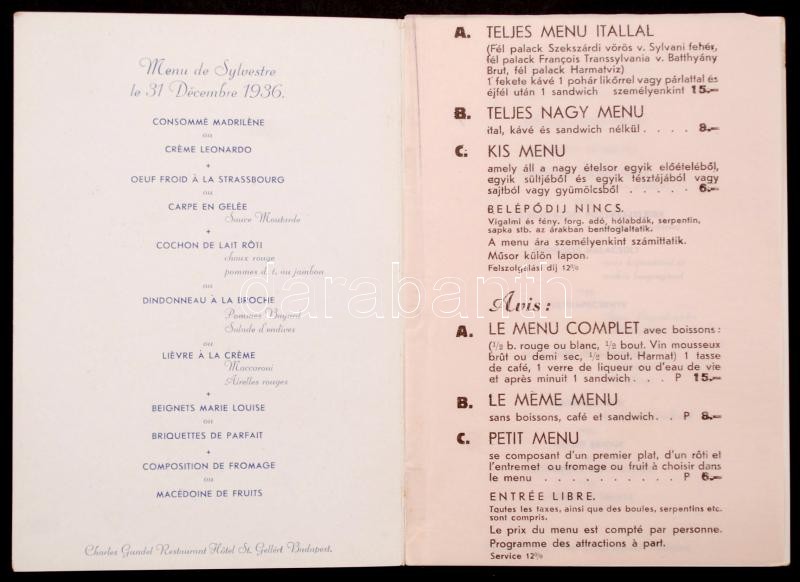 Menu de Sylvestre
le 31 Décembre 1936.
CONSOMMÉ MADRILÈNE
ou
CRÈME LEONARDO
+
OEUF FROID À LA STRASSBOURG
ou
CARPE EN GELÉE
Sauce Moutarde
+
COCHON DE LAIT RÔTI
choux rouge
pommes d. t. au jambon
ou
DINDONNEAU À LA BROCHE
Pommes Bayard
Salade d'endives
ou
LIÈVRE À LA CRÈME
Maccaroni
Airelles rouges
+
BEIGNETS MARIE LOUISE
ou
BRIQUETTES DE PARFAIT
+
COMPOSITION DE FROMAGE
ou
MACÉDOINE DE FRUITS
Charles Gundel Restaurant Hôtel St. Gellért Budapest.
A. TELJES MENU ITALLAL
(Fél palack Szekszárdi vörös v. Sylvani fehér,
fél palack François Transsylvania v. Batthyány
Brut, fél palack Harmatviz)
1 fekete kávé 1 pohár likőrrel vagy párlattal és
éjfél után 1 sandwich személyenkint 15.—
B. TELJES NAGY MENU
ital, kávé és sandwich nélkül . . . . 8.—
C. KIS MENU
amely áll a nagy ételsor egyik előételéből,
egyik sültjéből és egyik tésztájából vagy
sajtból vagy gyümölcsből . . . . . 6.—
BELÉPŐDIJ NINCS.
Vigalmi és fény. forg. adó, hólabdák, serpentin,
sapka stb. az árakban bentfoglaltatik.
A menu ára személyenkint számittatik.
Műsor külön lapon.
Felszolgálási dij 12%
Avis:
A. LE MENU COMPLET avec boissons:
(1/2 b. rouge ou blanc, 1/2 bout. Vin mousseux
brût ou demi sec, 1/2 bout. Harmat) 1 tasse
de café, 1 verre de liqueur ou d'eau de vie
et après minuit 1 sandwich . . . P 15.—
B. LE MÈME MENU
sans boissons, café et sandwich . . P 8.—
C. PETIT MENU
se composant d'un premier plat, d'un rôti et
l'entremet ou fromage ou fruit à choisir dans
le menu . . . . . . . . . P 6.—
ENTRÉE LIBRE.
Toutes les taxes, ainsi que des boules, serpentins etc.
sont compris.
Le prix du menu est compté par personne.
Programme des attractions à part.
Service 12%
darabanth